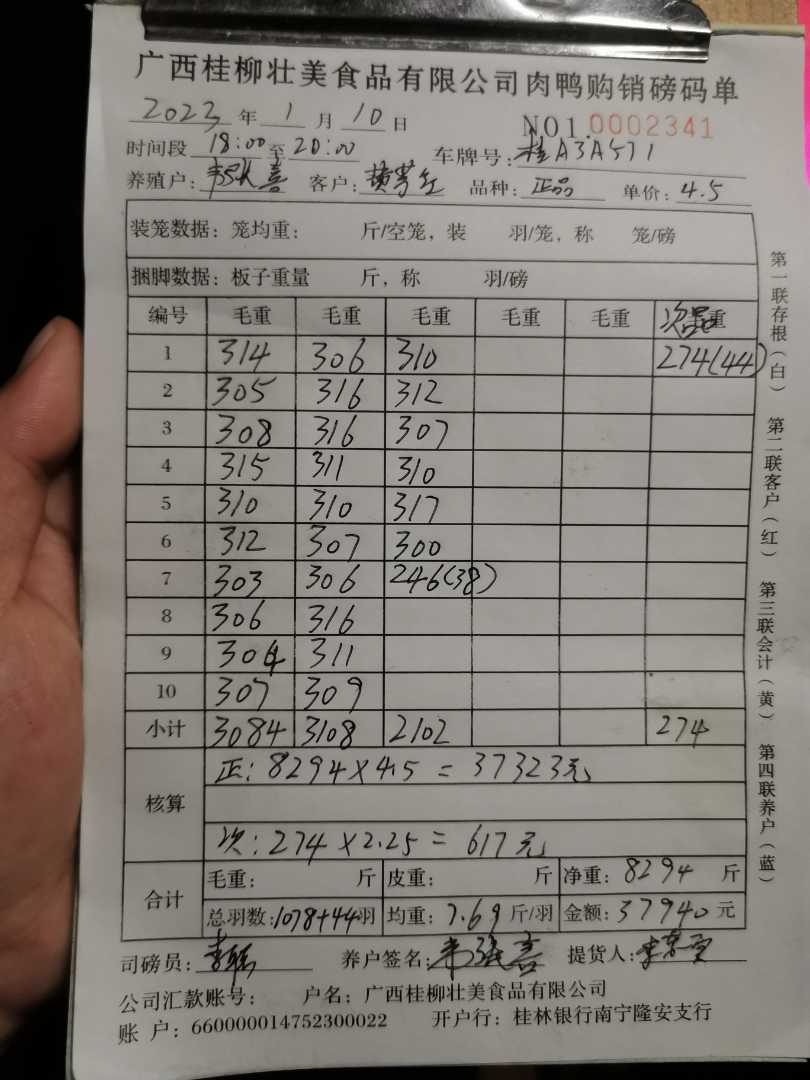 广西桂柳壮美食品有限公司肉鸭购销磅码单
2023 年 1 月 10 日 NO1.0002341
时间段 18:00 至 20:00 车牌号: 桂A3A571
养殖户: 韦强喜 客户: 品种: 正品 单价: 4.5
装笼数据: 笼均重: 斤/空笼, 装 羽/笼, 称 笼/磅
捆脚数据: 板子重量 斤, 称 羽/磅
编号 毛重 毛重 毛重 毛重 毛重 次品重
1 314 306 310 274(44)
2 305 316 312
3 308 316 307
4 315 311 310
5 310 310 317
6 312 307 300
7 303 306 246(38)
8 306 316
9 304 311
10 307 309
小计 3084 3108 2102 274
核算
正: 8294×4.5 = 37323元
次: 274×2.25 = 617元
合计
毛重: 斤 皮重: 斤 净重: 8294 斤
总羽数: 1078+44羽 均重: 7.69 斤/羽 金额: 37940 元
司磅员: 养户签名: 韦强喜 提货人:
公司汇款账号: 户名: 广西桂柳壮美食品有限公司
账 户: 660000014752300022 开户行: 桂林银行南宁隆安支行
第一联存根(白) 第二联客户(红) 第三联会计(黄) 第四联养户(蓝)